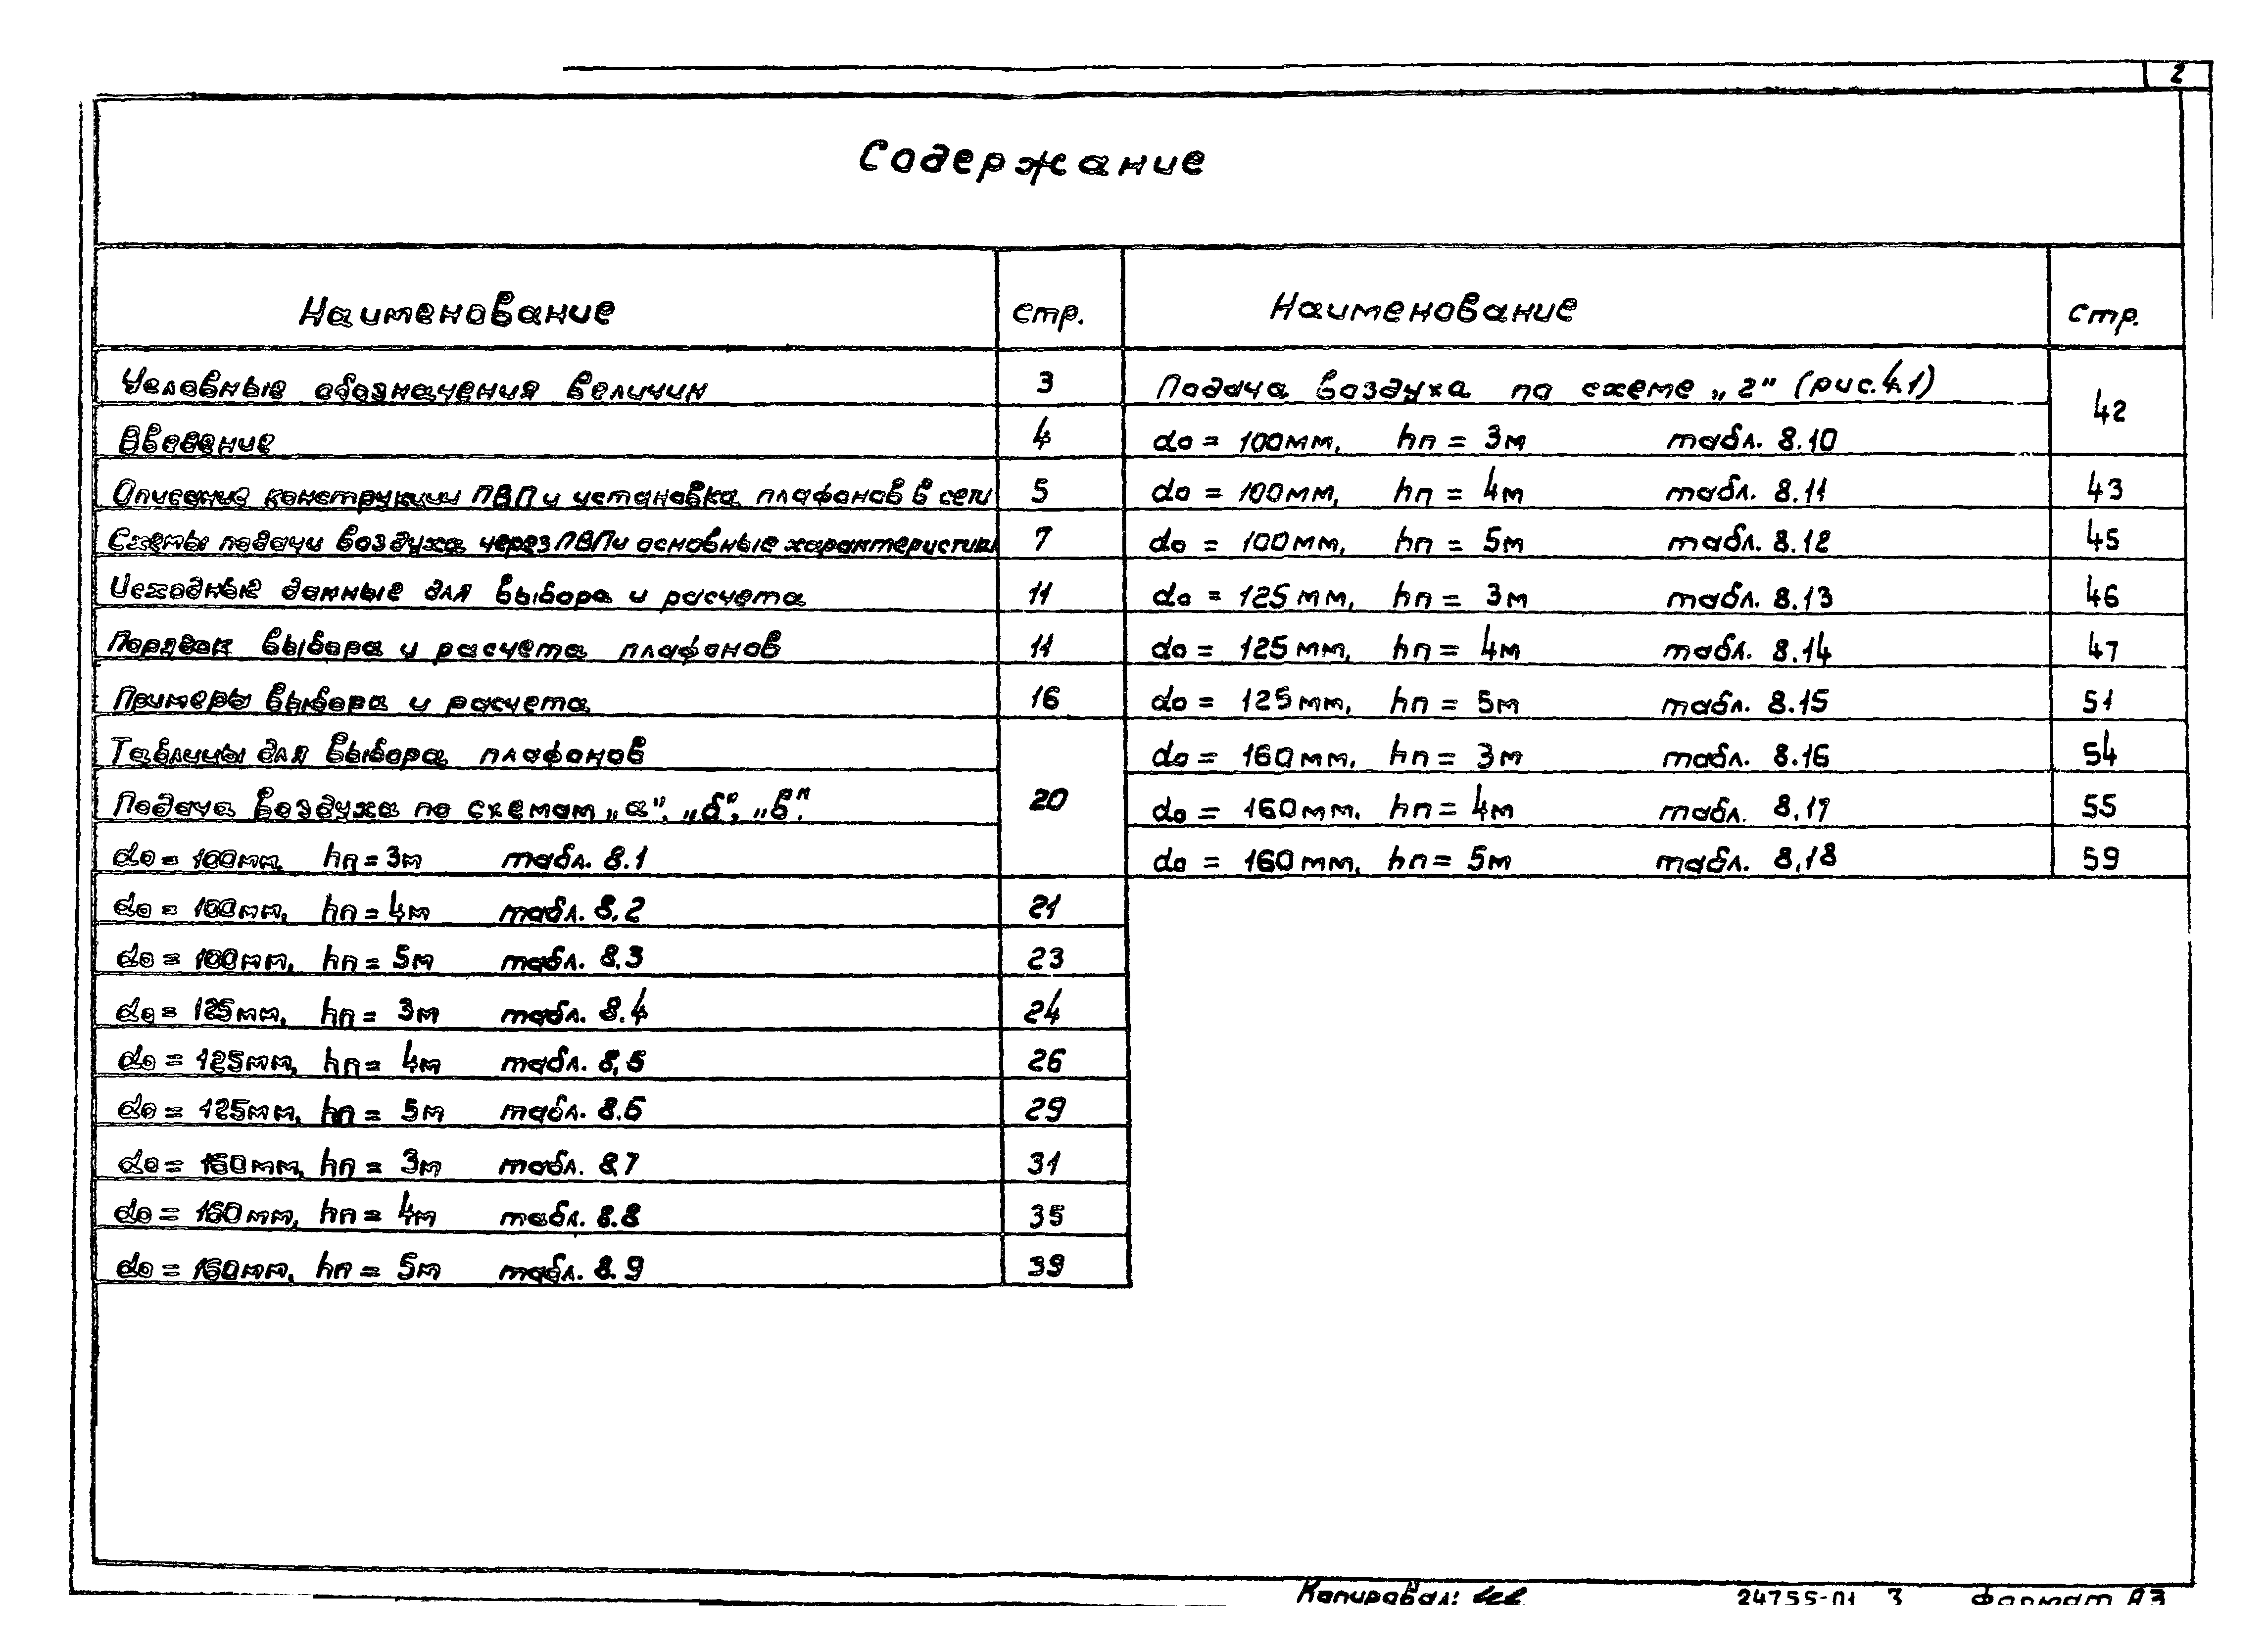 2
Содержание
Наименование стр.
Условные обозначения величин 3
Введение 4
Описание конструкции ПВП и установка плафонов в сети 5
Схемы подачи воздуха через ПВП и основные характеристики 7
Исходные данные для выбора и расчета 11
Порядок выбора и расчета плафонов 11
Примеры выбора и расчета 16
Таблицы для выбора плафонов
Подача воздуха по схемам „а", „б", „в". 20
do = 100мм, hп = 3м табл. 8.1
do = 100мм, hп = 4м табл. 8.2 21
do = 100мм, hп = 5м табл. 8.3 23
do = 125мм, hп = 3м табл. 8.4 24
do = 125мм, hп = 4м табл. 8.5 26
do = 125мм, hп = 5м табл. 8.6 29
do = 160мм, hп = 3м табл. 8.7 31
do = 160мм, hп = 4м табл. 8.8 35
do = 160мм, hп = 5м табл. 8.9 39
Наименование стр.
Подача воздуха по схеме „г" (рис.4.1) 42
do = 100мм, hп = 3м табл. 8.10
do = 100мм, hп = 4м табл. 8.11 43
do = 100мм, hп = 5м табл. 8.12 45
do = 125мм, hп = 3м табл. 8.13 46
do = 125мм, hп = 4м табл. 8.14 47
do = 125мм, hп = 5м табл. 8.15 51
do = 160мм, hп = 3м табл. 8.16 54
do = 160мм, hп = 4м табл. 8.17 55
do = 160мм, hп = 5м табл. 8.18 59
Копировал: 24755-01 3 Формат А3